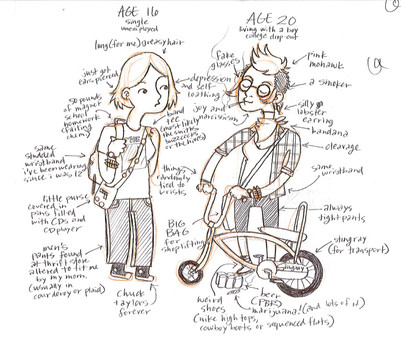 AGE 16
single
unemployed
long (for me) greasy hair
just got
ears pierced
50 pounds
of magnet
school
homework
(failing
thru)
same
studded
wristband
i've been wearing
since i was 12
little purse
covered in
pins filled
with CDs and
CD player
men's
pants found
at thrift store
altered to fit me
by my mom.
(usually in
corduroy or plaid)
chuck
taylors
forever
depression
and self-
loathing
band
tee
(most likely
the smiths
buzzcocks
or the cure)
things
randomly
tied to
wrists
AGE 20
living with a boy
college drop-out
fake
glasses
pink
mohawk
a smoker
silly
lobster
earring
joy and
narcissism
bandana
cleavage
same
wristband
BIG
BAG
for
shoplifting
always
tight pants
stingray
(for transport)
weird
shoes
(nike high tops,
cowboy boots or sequenced flats)
beer
(PBR)
marijuana! (and lots of it)